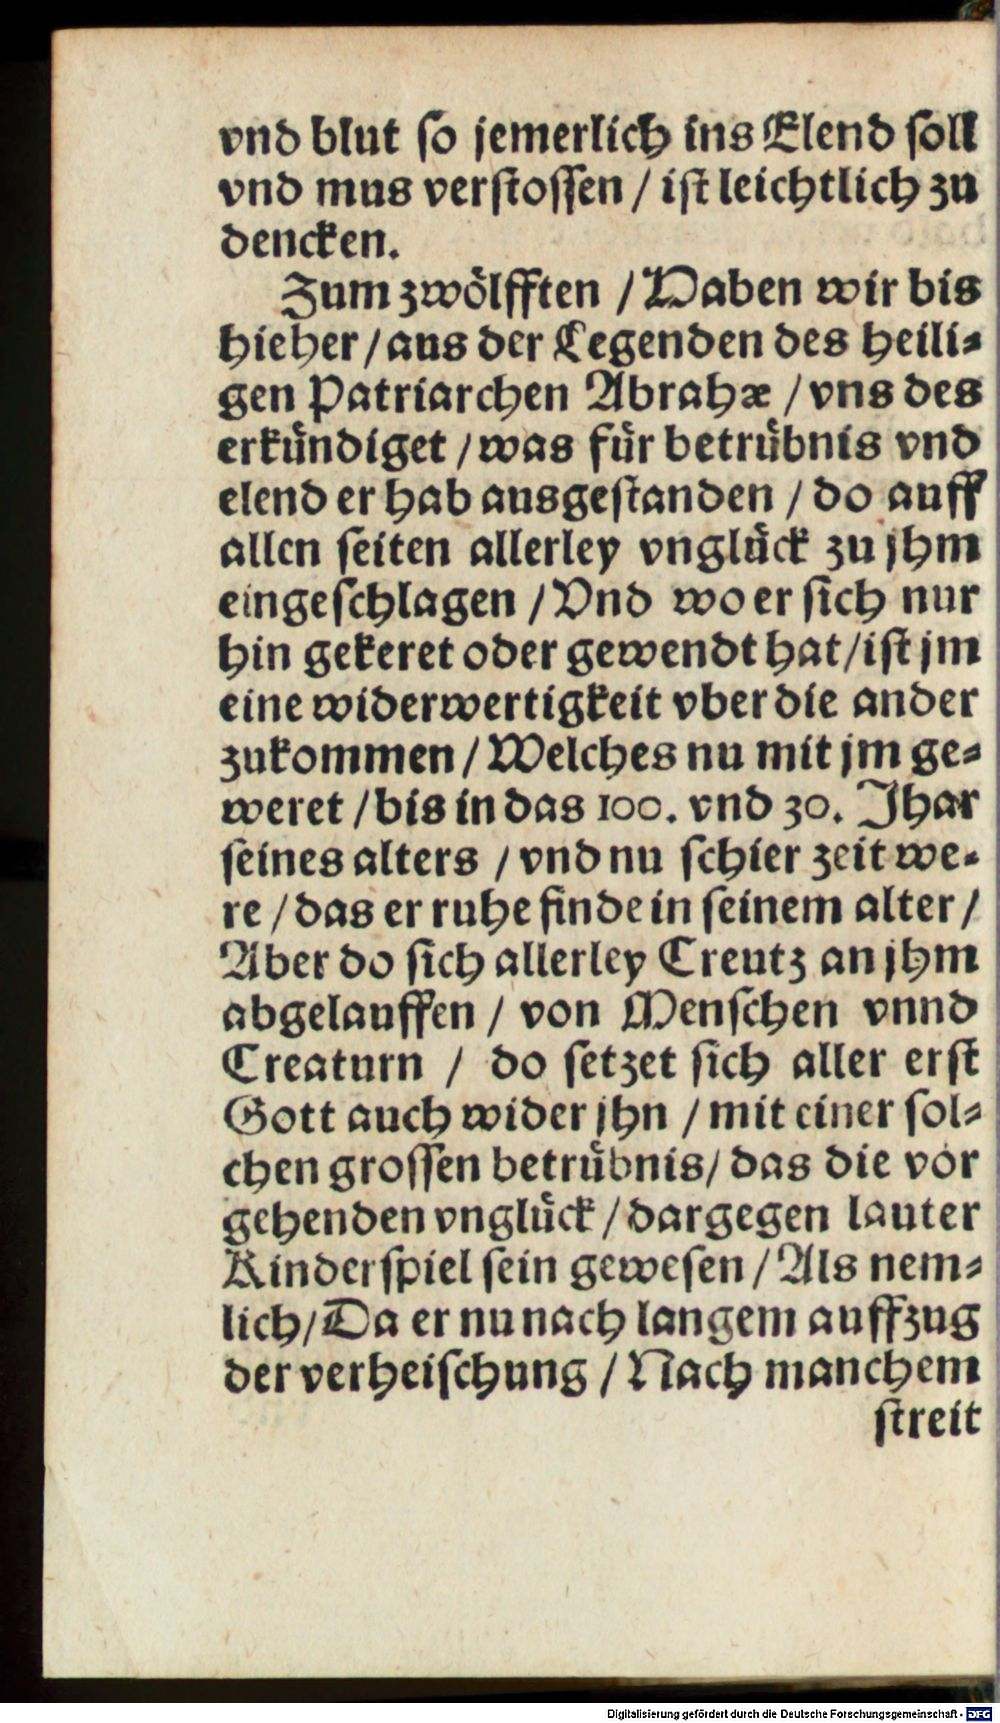 vnd blut ſo jemerlich ins Elend ſoll
vnd mus verſtoſſen / iſt leichtlich zu
dencken.
Zum zwoͤlfften / Haben wir bis
hieher / aus der Legenden des heili⸗
gen Patriarchen Abrahæ / vns des
erkuͤndiget / was fuͤr betruͤbnis vnd
elend er hab ausgeſtanden / do auff
allen ſeiten allerley vngluͤck zu jhm
eingeſchlagen / Vnd wo er ſich nur
hin gekeret oder gewendt hat / iſt jm
eine widerwertigkeit vber die ander
zukommen / Welches nu mit jm ge⸗
weret / bis in das 100. vnd 30. Jhar
ſeines alters / vnd nu ſchier zeit we⸗
re / das er ruhe finde in ſeinem alter /
Aber do ſich allerley Creutz an jhm
abgelauffen / von Menſchen vnnd
Creaturn / do ſetzet ſich aller erſt
Gott auch wider jhn / mit einer ſol⸗
chen groſſen betruͤbnis / das die vor
gehenden vngluͤck / dargegen lauter
Kinderſpiel ſein geweſen / Als nem⸗
lich / Da er nu nach langem auffzug
der verheiſchung / Nach manchem
ſtreit
Digitalisierung gefördert durch die Deutsche Forschungsgemeinschaft - DFG